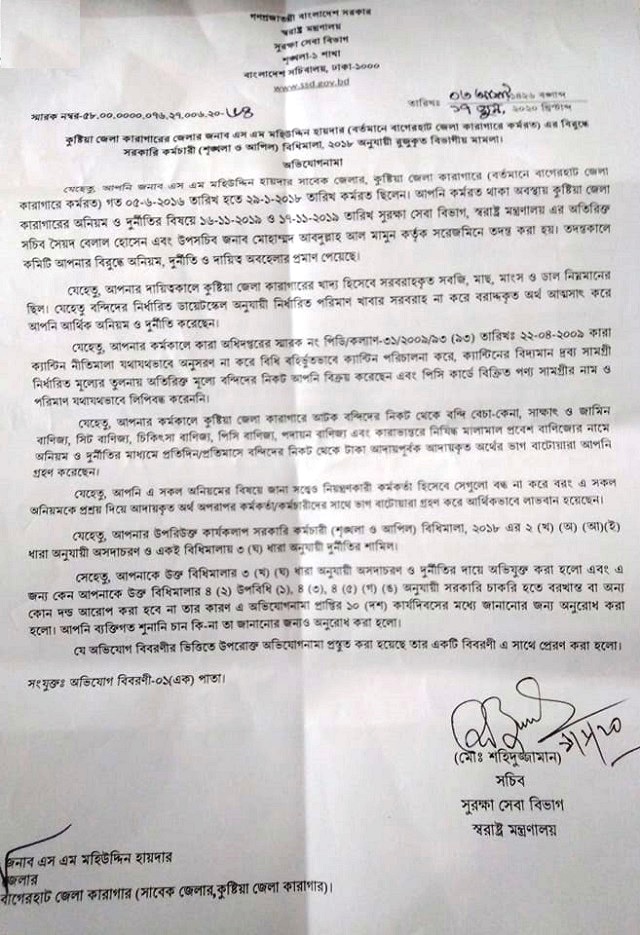 গণপ্রজাতন্ত্রী বাংলাদেশ সরকার
স্বরাষ্ট্র মন্ত্রণালয়
সুরক্ষা সেবা বিভাগ
শৃঙ্খলা-১ শাখা
বাংলাদেশ সচিবালয়, ঢাকা-১০০০
www.ssd.gov.bd
স্মারক নম্বর-৫৮.০০.০০০০.০৭৬.২৭.০০৬.২০-
তারিখঃ ১৪২৬ বঙ্গাব্দ
১৭ জুন, ২০২০ খ্রিষ্টাব্দ
কুষ্টিয়া জেলা কারাগারের জেলার জনাব এস এম মহিউদ্দিন হায়দার (বর্তমানে বাগেরহাট জেলা কারাগারে কর্মরত) এর বিরুদ্ধে
সরকারি কর্মচারী (শৃঙ্খলা ও আপিল) বিধিমালা, ২০১৮ অনুযায়ী রুজুকৃত বিভাগীয় মামলা।
অভিযোগনামা
যেহেতু, আপনি জনাব এস এম মহিউদ্দিন হায়দার সাবেক জেলার, কুষ্টিয়া জেলা কারাগারে (বর্তমানে বাগেরহাট জেলা
কারাগারে কর্মরত) গত ০৫-৬-২০১৬ তারিখ হতে ২৯-১-২০১৮ তারিখ কর্মরত ছিলেন। আপনি কর্মরত থাকা অবস্থায় কুষ্টিয়া জেলা
কারাগারের অনিয়ম ও দুর্নীতির বিষয়ে ১৬-১১-২০১৯ ও ১৭-১১-২০১৯ তারিখ সুরক্ষা সেবা বিভাগ, স্বরাষ্ট্র মন্ত্রণালয় এর অতিরিক্ত
সচিব সৈয়দ বেলাল হোসেন এবং উপসচিব জনাব মোহাম্মদ আবদুল্লাহ আল মামুন কর্তৃক সরেজমিনে তদন্ত করা হয়। তদন্তকালে
কমিটি আপনার বিরুদ্ধে অনিয়ম, দুর্নীতি ও দায়িত্ব অবহেলার প্রমাণ পেয়েছে।
যেহেতু, আপনার দায়িত্বকালে কুষ্টিয়া জেলা কারাগারের খাদ্য হিসেবে সরবরাহকৃত সবজি, মাছ, মাংস ও ডাল নিম্নমানের
ছিল। যেহেতু বন্দিদের নির্ধারিত ডায়েটস্কেল অনুযায়ী নির্ধারিত পরিমাণ খাবার সরবরাহ না করে বরাদ্দকৃত অর্থ আত্মসাৎ করে
আপনি আর্থিক অনিয়ম ও দুর্নীতি করেছেন।
যেহেতু, আপনার কর্মকালে কারা অধিদপ্তরের স্মারক নং পিডি/কল্যাণ-৩১/২০০৯/৯৩ (৯৩) তারিখঃ ২২-০৪-২০০৯ কারা
ক্যান্টিন নীতিমালা যথাযথভাবে অনুসরণ না করে বিধি বহির্ভূতভাবে ক্যান্টিন পরিচালনা করে, ক্যান্টিনের বিদ্যমান দ্রব্য সামগ্রী
নির্ধারিত মূল্যের তুলনায় অতিরিক্ত মূল্যে বন্দিদের নিকট আপনি বিক্রয় করেছেন এবং পিসি কার্ডে বিক্রিত পণ্য সামগ্রীর নাম ও
পরিমাণ যথাযথভাবে লিপিবদ্ধ করেননি।
যেহেতু, আপনার কর্মকালে কুষ্টিয়া জেলা কারাগারে আটক বন্দিদের নিকট থেকে বন্দি বেচা-কেনা, সাক্ষাৎ ও জামিন
বাণিজ্য, সিট বাণিজ্য, চিকিৎসা বাণিজ্য, পিসি বাণিজ্য, পদায়ন বাণিজ্য এবং কারাভ্যন্তরে নিষিদ্ধ মালামাল প্রবেশ বাণিজ্যের নামে
অনিয়ম ও দুর্নীতির মাধ্যমে প্রতিদিন/প্রতিমাসে বন্দিদের নিকট থেকে টাকা আদায়পূর্বক আদায়কৃত অর্থের ভাগ বাটোয়ারা আপনি
গ্রহণ করেছেন।
যেহেতু, আপনি এ সকল অনিয়মের বিষয়ে জানা সত্ত্বেও নিয়ন্ত্রণকারী কর্মকর্তা হিসেবে সেগুলো বন্ধ না করে বরং এ সকল
অনিয়মকে প্রশ্রয় দিয়ে আদায়কৃত অর্থ অপরাপর কর্মকর্তা/কর্মচারীদের সাথে ভাগ বাটোয়ারা গ্রহণ করে আর্থিকভাবে লাভবান হয়েছেন।
যেহেতু, আপনার উপরিউক্ত কার্যকলাপ সরকারি কর্মচারী (শৃঙ্খলা ও আপিল) বিধিমালা, ২০১৮ এর ২ (খ) (অ) (আ)(ই)
ধারা অনুযায়ী অসদাচরণ ও একই বিধিমালায় ৩ (ঘ) ধারা অনুযায়ী দুর্নীতির শামিল।
সেহেতু, আপনাকে উক্ত বিধিমালার ৩ (খ) (ঘ) ধারা অনুযায়ী অসদাচরণ ও দুর্নীতির দায়ে অভিযুক্ত করা হলো এবং এ
জন্য কেন আপনাকে উক্ত বিধিমালার ৪ (২) উপবিধি (১), ৪ (৩), ৪ (৫) (গ) (ঙ) অনুযায়ী সরকারি চাকরি হতে বরখাস্ত বা অন্য
কোন দন্ড আরোপ করা হবে না তার কারণ এ অভিযোগনামা প্রাপ্তির ১০ (দশ) কার্যদিবসের মধ্যে জানানোর জন্য অনুরোধ করা
হলো। আপনি ব্যক্তিগত শুনানি চান কি-না তা জানানোর জন্যও অনুরোধ করা হলো।
যে অভিযোগ বিবরণীর ভিত্তিতে উপরোক্ত অভিযোগনামা প্রস্তুত করা হয়েছে তার একটি বিবরণী এ সাথে প্রেরণ করা হলো।
সংযুক্তঃ অভিযোগ বিবরণী-০১(এক) পাতা।
(মোঃ শহিদুজ্জামান)
সচিব
সুরক্ষা সেবা বিভাগ
স্বরাষ্ট্র মন্ত্রণালয়
জনাব এস এম মহিউদ্দিন হায়দার
জেলার
বাগেরহাট জেলা কারাগার (সাবেক জেলার,কুষ্টিয়া জেলা কারাগার)।